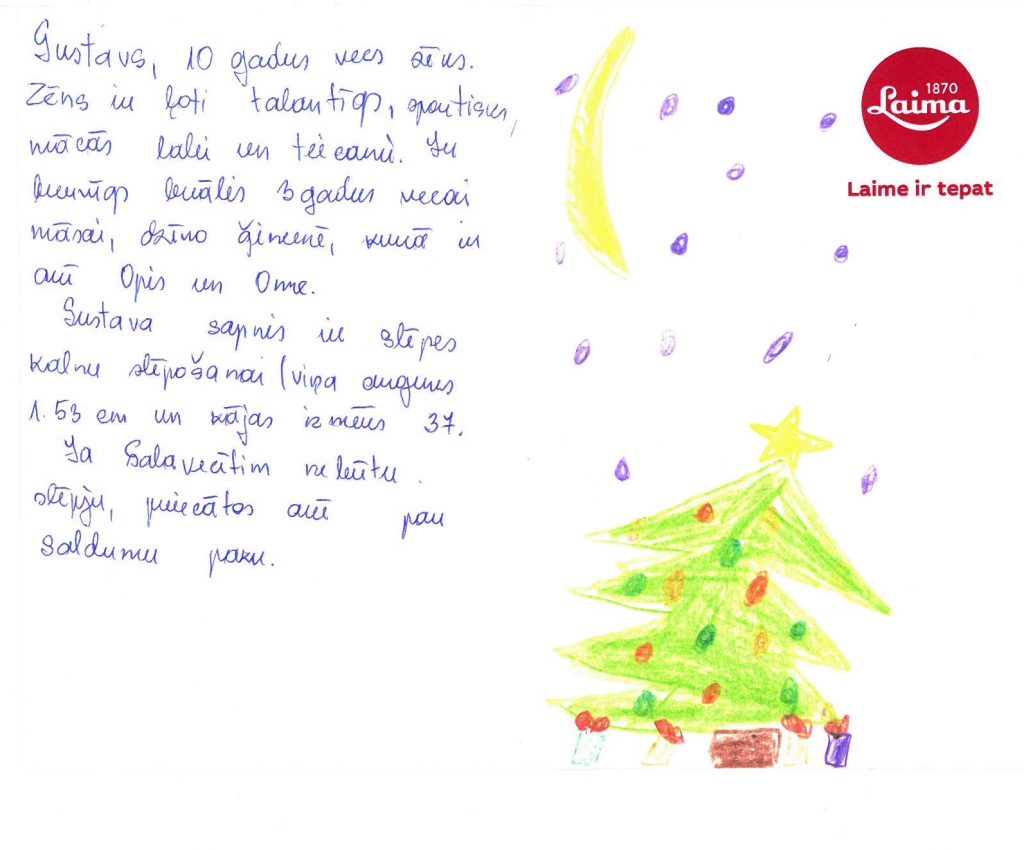 Gustavs, 10 gadus vecs zēns.
Zēns ir ļoti talantīgs, sportisks,
mācās labi un teicami. Ir
brālis 3 gadus vecai
māsai, dzīvo ģimenē, kurā ir
arī Opis un Ome.
Gustava sapnis ir slēpes
kalnu slēpošanai (viņa augums
1.53 cm un kājas izmērs 37.
Ja Salavecītim nebūtu
slēpju, priecātos arī par
saldumu paku.
1870
Laima
Laime ir tepat